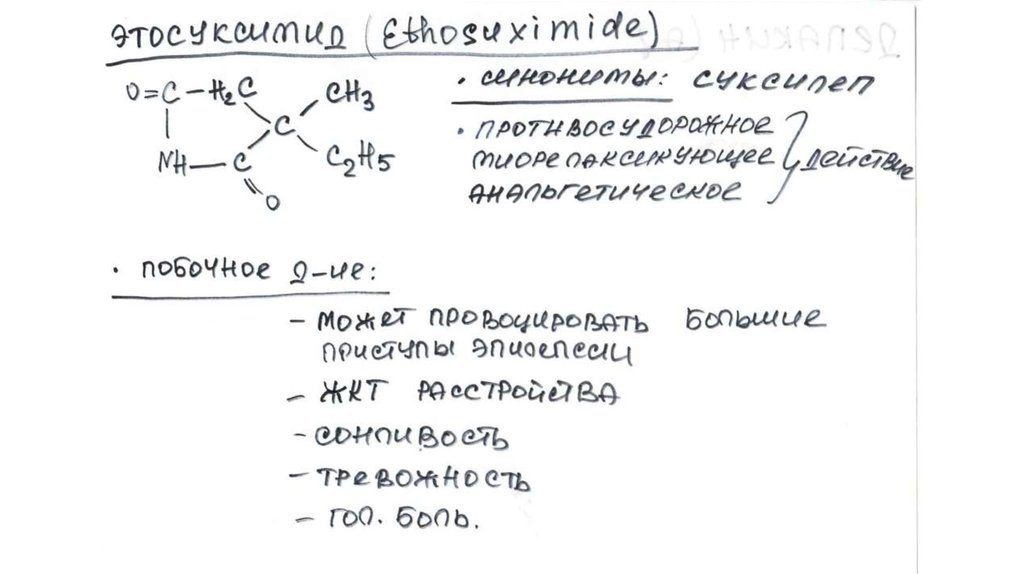 ЭТОСУКСИМИД (Ethosuximide)
O=C – H₂C CH₃
C
NH – C C₂H₅
O
• СИНОНИМЫ: СУКСИЛЕП
• ПРОТИВОСУДОРОЖНОЕ
МИОРЕЛАКСИРУЮЩЕЕ } ДЕЙСТВИЕ
АНАЛЬГЕТИЧЕСКОЕ
• ПОБОЧНОЕ Д-ИЕ:
– МОЖЕТ ПРОВОЦИРОВАТЬ БОЛЬШИЕ
ПРИСТУПЫ ЭПИЛЕПСИИ
– ЖКТ РАССТРОЙСТВА
– СОНЛИВОСТЬ
– ТРЕВОЖНОСТЬ
– ГОЛ. БОЛЬ.